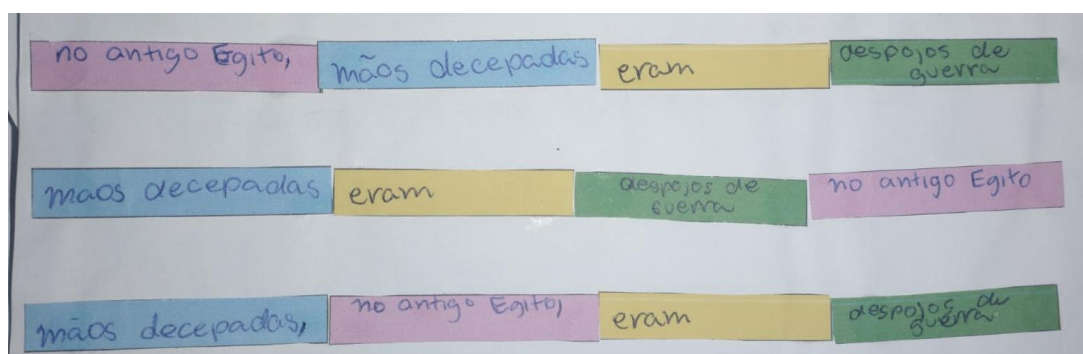 no antigo Egito, mãos decepadas eram despojos de guerra
maos decepadas eram despojos de guerra no antigo Egito
mãos decepadas, no antigo Egito, eram despojos de guerra